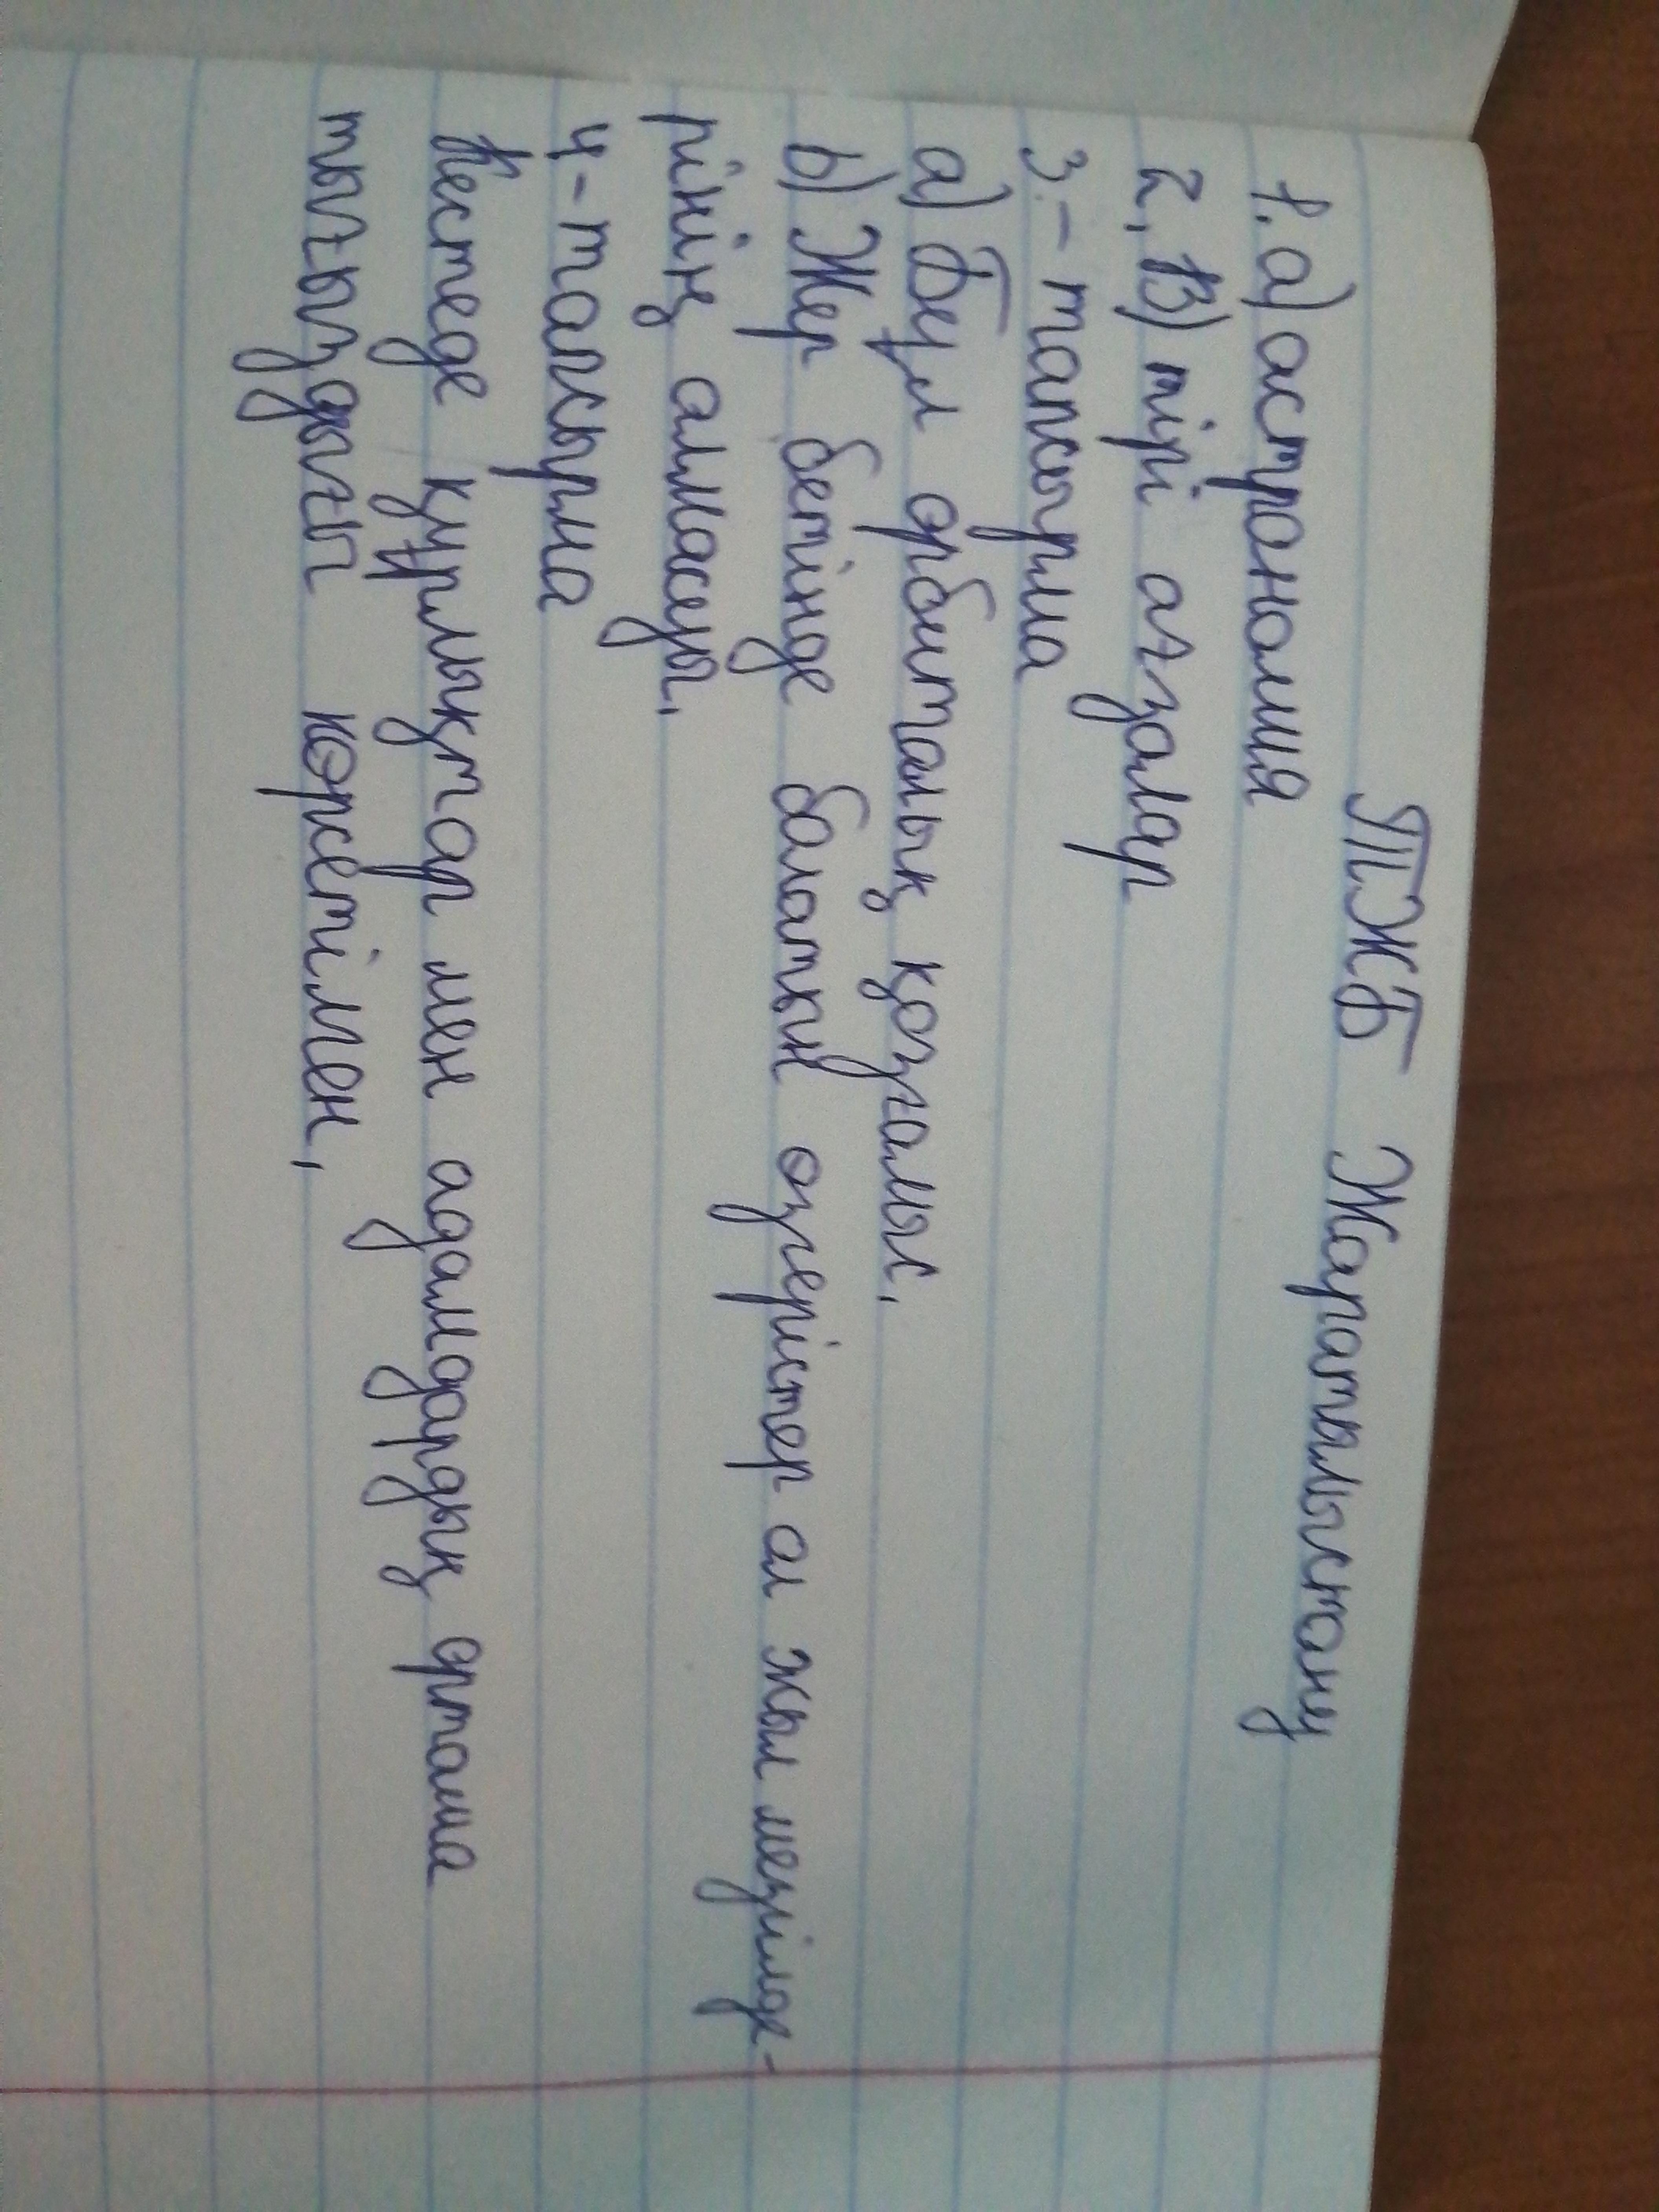 ТЖБ Жаратылыстану
1. а) астрономия
2, В) тірі ағзалар
3. - тапсырма
а) Бұл орбиталық қозғалыс.
b) Жер бетінде болатын өзгерістер ол жыл мезгілде-
рінің алмасуы.
4 - тапсырма
Кестеде құрлықтар мен адамдардың орташа
тығыздығы көрсетілген,